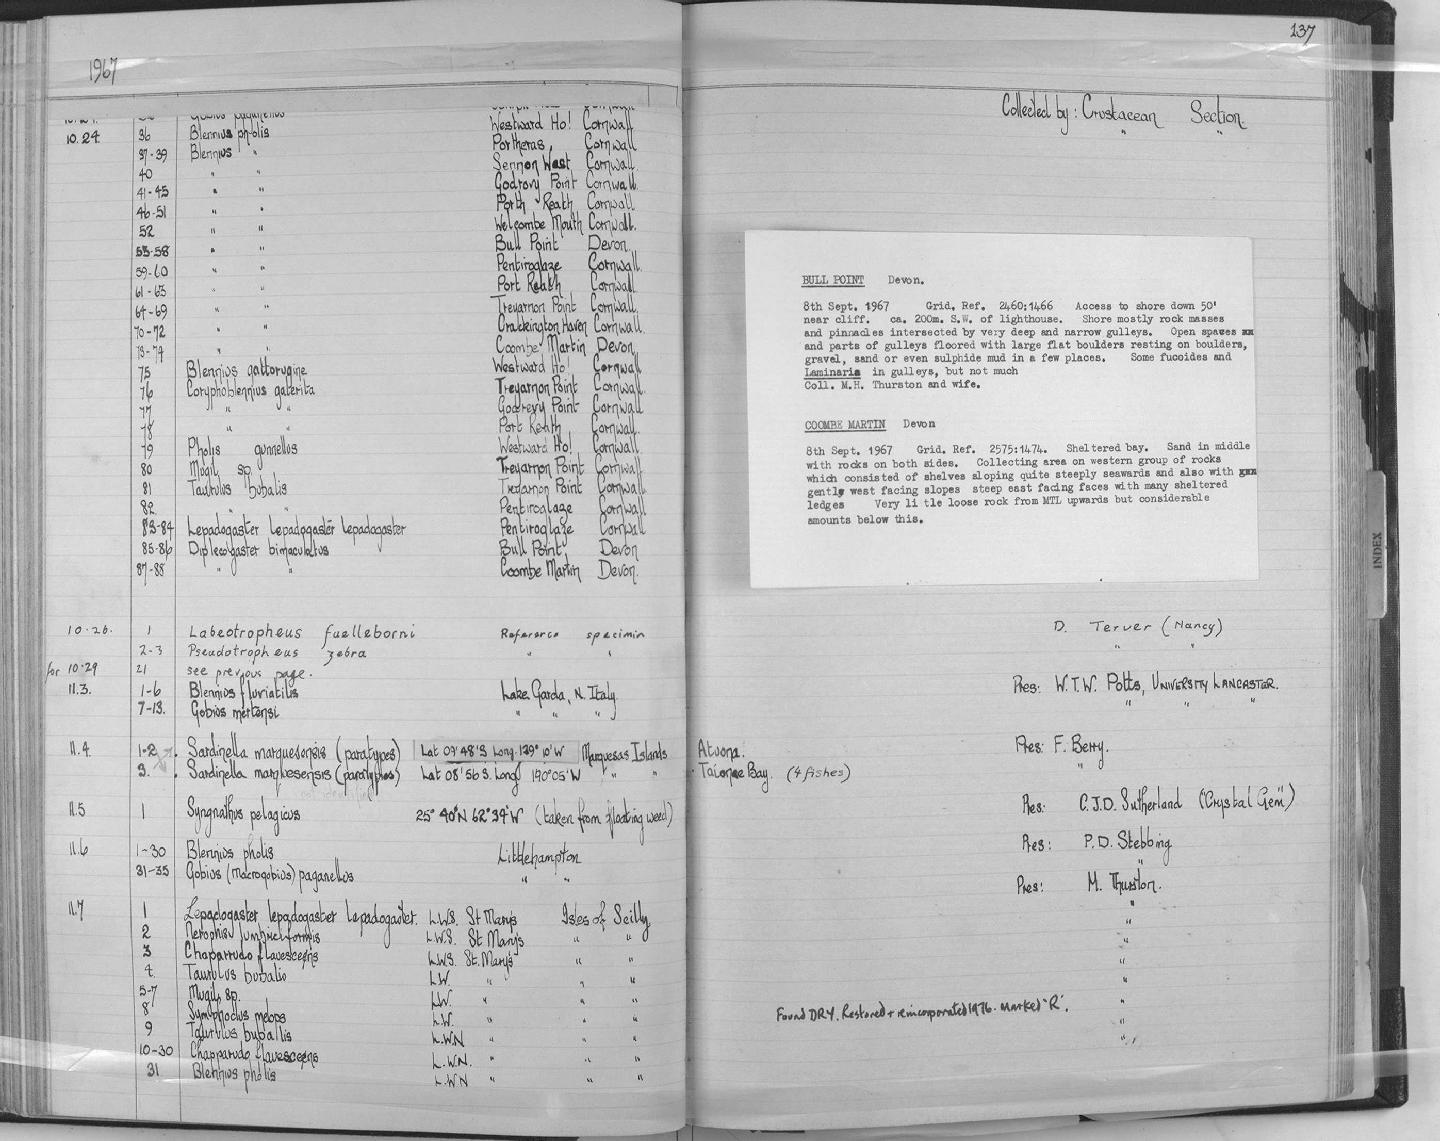 1967
10.24 36 Blennius pholis Westward Ho! Cornwall
37-39 Blennius " Portheras, Cornwall
40 " " Sennon West Cornwall
41-45 " " Godrovy Point Cornwall
46-51 " " Porth Reath Cornwall
52 " " Welcombe Mouth Cornwall.
53-58 " " Bull Point Devon.
59-60 " " Pentiroglaze Cornwall.
61-63 " " Port Reath Cornwall
64-69 " Treyarnon Point Cornwall.
70-72 " " Crackington Haven Cornwall.
73-74 " " Coombe Martin Devon
75 Blennius gattorugine Westward Ho! Cornwall
76 Coryphoblennius galerita Treyarnon Point Cornwall.
77 " " Godrevy Point Cornwall
78 " " Port Reath Cornwall
79 Pholis gunnellus Westward Ho! Cornwall
80 Mugil sp. Treyarnon Point Cornwall
81 Taurulus bubalis Treyarnon Point Cornwall.
82 " " Pentiroglaze Cornwall
83-84 Lepadogaster Lepadogaster Lepadogaster Pentiroglaze Cornwall
85-86 Diplecogaster bimaculatus Bull Point Devon
87-88 " " Coombe Martin Devon.
10.26. 1 Labeotropheus fuelleborni Reference specimin
2-3 Pseudotropheus zebra " "
for 10.29 21 see previous page.
11.3. 1-6 Blennius fluviatilis Lake Garda, N. Italy
7-13. Gobius mertensi " " "
11.4 1-2 Sardinella marquesensis (paratypes) Lat 09°48'S Long. 139°10'W Marquesas Islands
3. Sardinella marquesensis (paratypes) Lat 08°56 S. Long 140°05'W " "
11.5 1 Syngnathus pelagicus 25°40'N 62°34'W (taken from floating weed)
11.6 1-30 Blennius pholis Littlehampton
31-35 Gobius (Macrogobius) paganellus " "
11.7 1 Lepadogaster lepadogaster lepadogaster. L.W.S. St Mary's Isles of Scilly
2 Nerophis lumbriciformis L.W.S. St Mary's " "
3 Chaparrudo flavescens L.W.S. St. Mary's " "
4. Taurulus bubalis L.W. " " "
5-7 Mugil sp. L.W. " " "
8 Symphodus melops L.W. " " "
9 Taurulus buballis L.W.N " " "
10-30 Chapparudo flavescens L.W.N. " " "
31 Blennius pholis L.W.N " " "
137
Collected by: Crustacean Section.
" "
BULL POINT Devon.
8th Sept. 1967 Grid. Ref. 2460:1466 Access to shore down 50'
near cliff. ca. 200m. S.W. of lighthouse. Shore mostly rock masses
and pinnacles intersected by very deep and narrow gulleys. Open spaces
and parts of gulleys floored with large flat boulders resting on boulders,
gravel, sand or even sulphide mud in a few places. Some fucoides and
Laminaria in gulleys, but not much
Coll. M.H. Thurston and wife.
COOMBE MARTIN Devon
8th Sept. 1967 Grid. Ref. 2575:1474. Sheltered bay. Sand in middle
with rocks on both sides. Collecting area on western group of rocks
which consisted of shelves sloping quite steeply seawards and also with
gently west facing slopes steep east facing faces with many sheltered
ledges Very li tle loose rock from MTL upwards but considerable
amounts below this.
INDEX
D. Terver (Nancy)
" "
Pres: W.T.W. Potts, UNIVERSITY LANCASTER.
" " "
Atuona. Pres: F. Berry.
Taiohae Bay. (4 fishes) "
Pres: C.J.D. Sutherland ("Crystal Gem")
Pres: P.D. Stebbing
"
Pres: M. Thurston.
"
"
"
"
"
Found DRY. Restored + reincorporated 1976. Marked 'R'. "
"
"